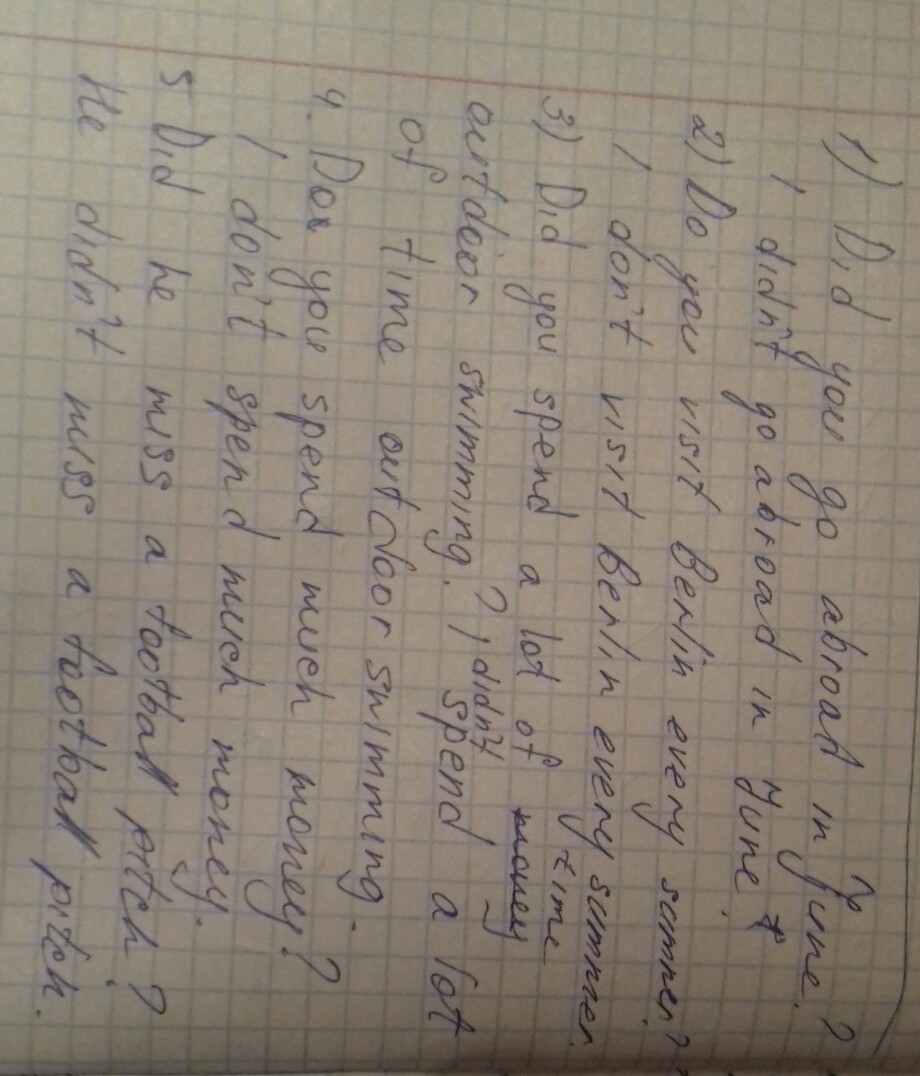 1) Did you go abroad in June?
I didn't go abroad in June.
2) Do you visit Berlin every summer?
I don't visit Berlin every summer.
3) Did you spend a lot of money time
outdoor swimming.? I didn't spend a lot
of time outdoor swimming.
4. Do you spend much money?
I don't spend much money.
5 Did he miss a football pitch?
He didn't miss a football pitch.